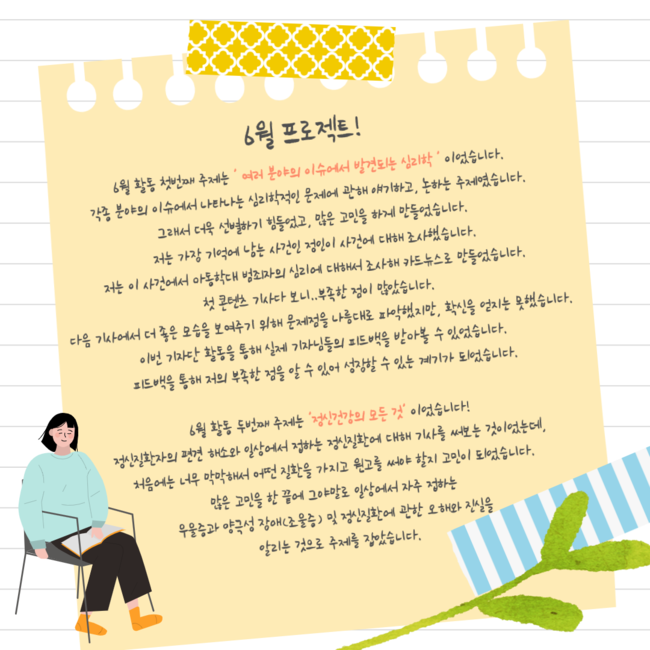 6월 프로젝트!
6월 활동 첫번째 주제는 ' 여러 분야의 이슈에서 발견되는 심리학 ' 이었습니다.
각종 분야의 이슈에서 나타나는 심리학적인 문제에 관해 얘기하고, 논하는 주제였습니다.
그래서 더욱 선별하기 힘들었고, 많은 고민을 하게 만들었습니다.
저는 가장 기억에 남는 사건인 정인이 사건에 대해 조사했습니다.
저는 이 사건에서 아동학대 범죄자의 심리에 대해서 조사해 카드뉴스로 만들었습니다.
첫 콘텐츠 기사다 보니..부족한 점이 많았습니다.
다음 기사에서 더 좋은 모습을 보여주기 위해 문제점을 나름대로 파악했지만, 확신을 얻지는 못했습니다.
이번 기자단 활동을 통해 실제 기자님들의 피드백을 받아볼 수 있었습니다.
피드백을 통해 저의 부족한 점을 알 수 있어 성장할 수 있는 계기가 되었습니다.
6월 활동 두번째 주제는 '정신건강의 모든 것' 이었습니다!
정신질환자의 편견 해소와 일상에서 접하는 정신질환에 대해 기사를 써보는 것이었는데,
처음에는 너무 막막해서 어떤 질환을 가지고 원고를 써야 할지 고민이 되었습니다.
많은 고민을 한 끝에 그야말로 일상에서 자주 접하는
우울증과 양극성 장애(조울증) 및 정신질환에 관한 오해와 진실을
알리는 것으로 주제를 잡았습니다.